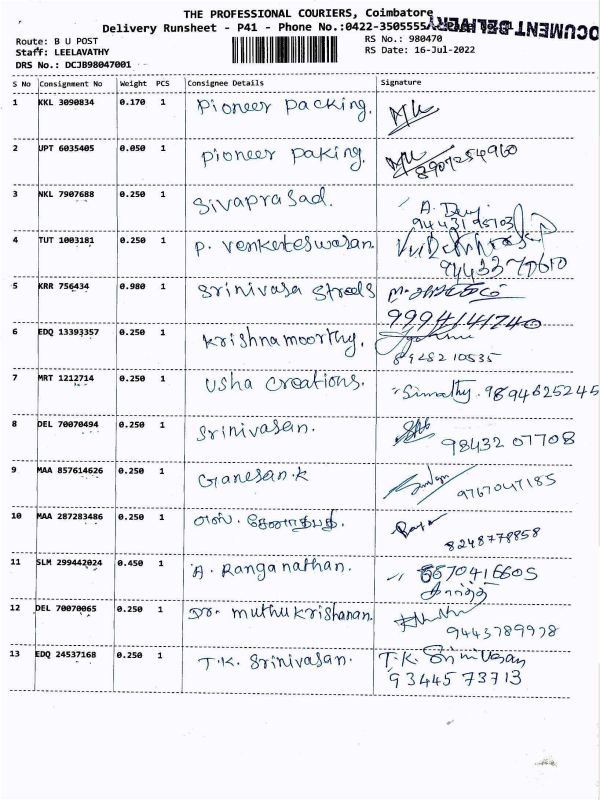 THE PROFESSIONAL COURIERS, Coimbatore
Delivery Runsheet - P41 - Phone No.:0422-3505555
DOCUMENT DELIVERY
Route: B U POST RS No.: 980470
Staff: LEELAVATHY RS Date: 16-Jul-2022
DRS No.: DCJB98047001
S No Consignment No Weight PCS Consignee Details Signature
1 KKL 3090834 0.170 1 Pioneer Packing.
2 UPT 6035405 0.050 1 Pioneer Paking. 8907254960
3 NKL 7907688 0.250 1 Sivaprasad. A. Devi
9443195703
4 TUT 1003181 0.250 1 P. Venkateswaran.
9443370610
5 KRR 756434 0.980 1 Srinivasa Streels
9994141740
6 EDQ 13393357 0.250 1 Krishnamoorthy.
8928210535
7 MRT 1212714 0.250 1 Usha Creations. Sumathy. 9894625245
8 DEL 70070494 0.250 1 Srinivasan. 98432 07708
9 MAA 857614626 0.250 1 Ganesan.K 9767047185
10 MAA 287283486 0.250 1 எஸ். 8248778858
11 SLM 299442024 0.450 1 A. Ranganathan. 8870416605
கார்த்தி
12 DEL 70070065 0.250 1 Dr. Muthukrishanan.
9443789978
13 EDQ 24537168 0.250 1 T.K. Srinivasan. T.K. Srinivasan
93445 73713